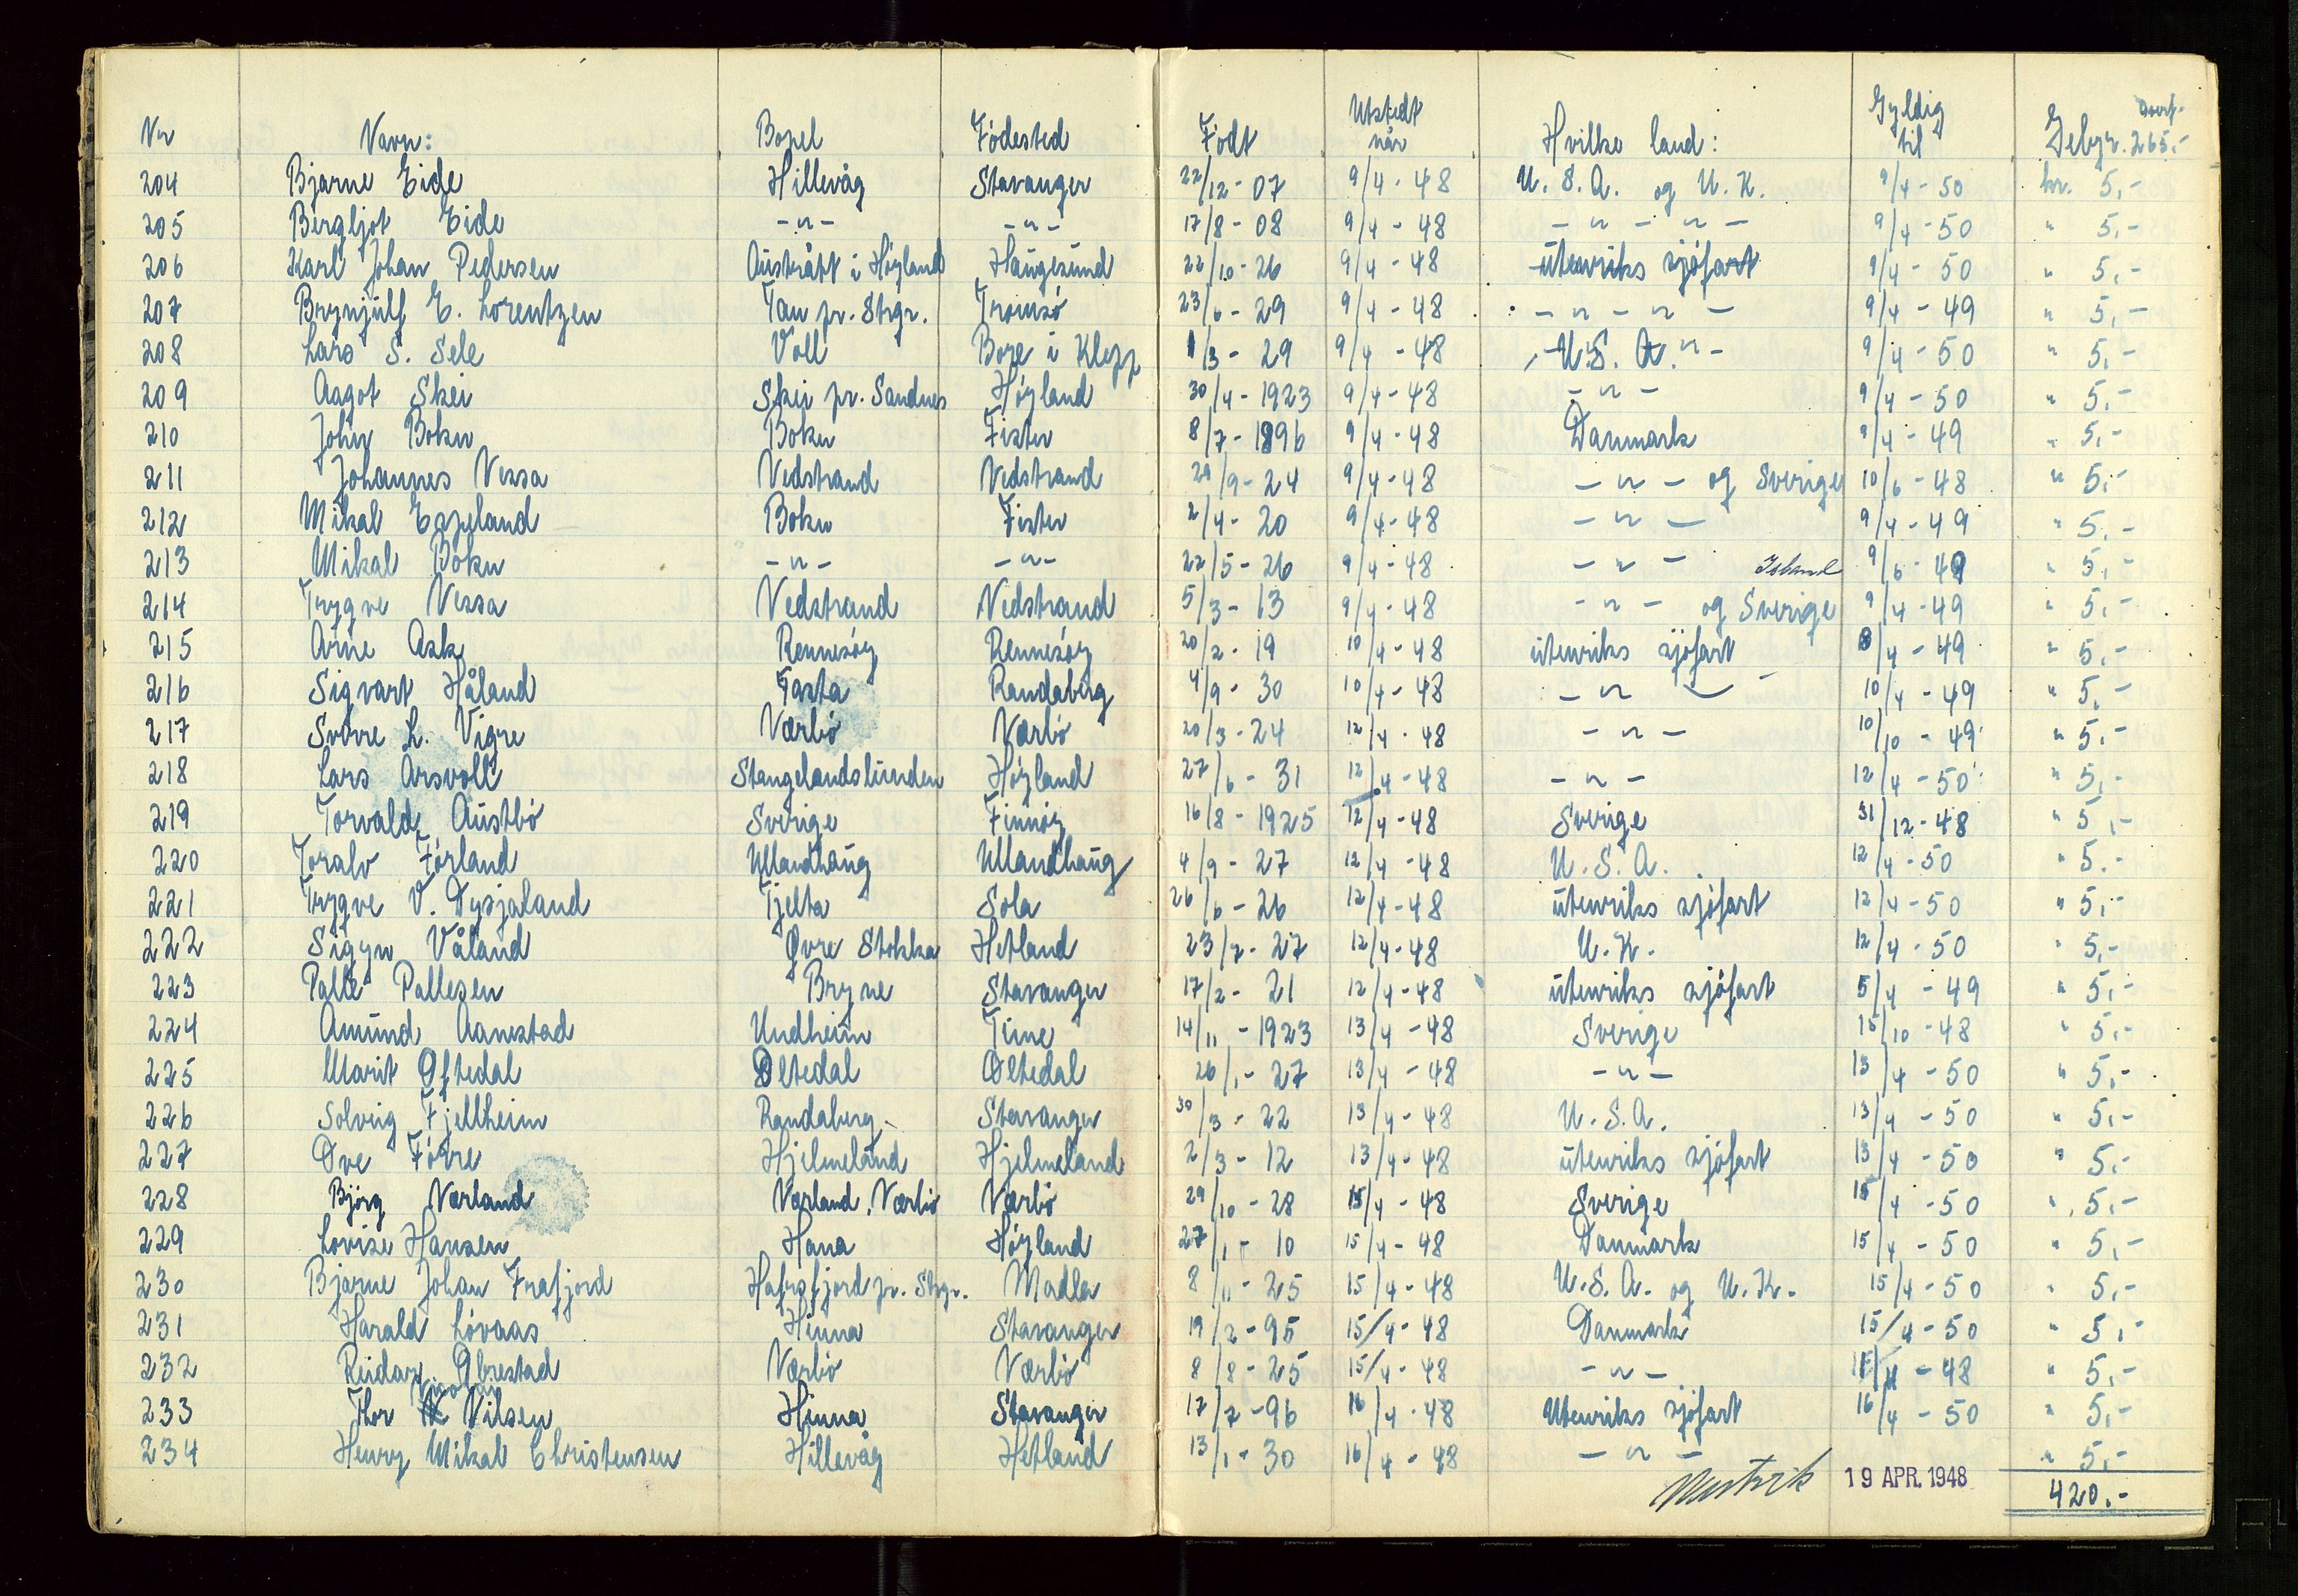 Nr Navn: Bopel Födested Födt Utstedt når Hvilke land: Gyldig til Gebyr. Overf. 265.-
204 Bjarne Eide Hillevåg Stavanger 22/12-07 9/4-48 U.S.A. og U.K. 9/4-50 kr. 5,-
205 Bergljot Eide -"- -"- 17/8-08 9/4-48 -"-"- 9/4-50 " 5,-
206 Karl Johan Pedersen Austrått i Höyland Haugesund 22/10-26 9/4-48 utenriks sjöfart 9/4-50 " 5,-
207 Brynjulf E. Lorentzen Tau pr. Stgr. Tromsö 23/6-29 9/4-48 -"-"- 9/4-49 " 5,-
208 Lars S. Sele Voll Bore i Klepp 1/3-29 9/4-48 U.S.A. 9/4-50 " 5,-
209 Aagot Skei Skei pr. Sandnes Höyland 30/4-1923 9/4-48 -"- 9/4-50 " 5,-
210 John Bokn Bokn Fister 8/7-1896 9/4-48 Danmark 9/4-49 " 5,-
211 Johannes Nessa Nedstrand Nedstrand 29/9-24 9/4-48 -"- og Sverige 10/6-48 " 5,-
212 Mikal Espeland Bokn Fister 2/4-20 9/4-48 -"- 9/4-49 " 5,-
213 Mikal Bokn -"- -"- 22/5-26 9/4-48 -"- 9/6-49 " 5,-
214 Trygve Nessa Nedstrand Nedstrand 5/3-13 9/4-48 -"- Island og Sverige 9/4-49 " 5,-
215 Arne Ask Rennesöy Rennesöy 20/2-19 10/4-48 utenriks sjöfart 8/4-49 " 5,-
216 Sigvart Håland Tasta Randaberg 4/9-30 10/4-48 -"- 10/4-49 " 5,-
217 Sverre L. Vigre Nærbö Nærbö 20/3-24 12/4-48 -"- 10/10-49 " 5,-
218 Lars Arsvoll Stangelandslunden Höyland 27/6-31 12/4-48 -"- 12/4-50 " 5,-
219 Torvald Austbö Sverige Finnöy 16/8-1925 12/4-48 Sverige 31/12-48 " 5,-
220 Toralv Förland Ullandhaug Ullandhaug 4/9-27 12/4-48 U.S.A. 12/4-50 " 5,-
221 Trygve V. Dysjaland Tjelta Sola 26/6-26 12/4-48 utenriks sjöfart 12/4-50 " 5,-
222 Sigyn Våland Øvre Stokka Hetland 23/7-27 12/4-48 U.K. 12/4-50 " 5,-
223 Palle Pallesen Bryne Stavanger 17/2-21 12/4-48 utenriks sjöfart 5/4-49 " 5,-
224 Amund Aanestad Undheim Time 14/11-1923 13/4-48 Sverige 15/10-48 " 5,-
225 Marit Oftedal Oltedal Oltedal 26/1-27 13/4-48 -"- 13/4-50 " 5,-
226 Solveig Fjellheim Randaberg Stavanger 30/3-22 13/4-48 U.S.A. 13/4-50 " 5,-
227 Ove Förre Hjelmeland Hjelmeland 2/3-12 13/4-48 utenriks sjöfart 13/4-50 " 5,-
228 Björg Nærland Nærland, Nærbö Nærbö 29/10-28 15/4-48 Sverige 15/4-50 " 5,-
229 Lovise Hansen Hana Höyland 27/1-10 15/4-48 Danmark 15/4-50 " 5,-
230 Bjarne Johan Frafjord Hafrsfjord pr. Stgr. Madla 8/11-25 15/4-48 U.S.A. og U.K. 15/4-50 " 5,-
231 Harald Lövaas Hinna Stavanger 19/2-95 15/4-48 Danmark 15/4-50 " 5,-
232 Reidar Obrestad Nærbö Nærbö 8/8-25 15/4-48 -"- -48 " 5,-
233 Thor Nilsen Hinna Stavanger 17/7-96 16/4-48 Utenriks sjöfart 16/4-50 " 5,-
234 Henry Mikal Christensen Hillevåg Hetland 13/1-30 16/4-48 -"- " 5,-
19 APR. 1948 420.-